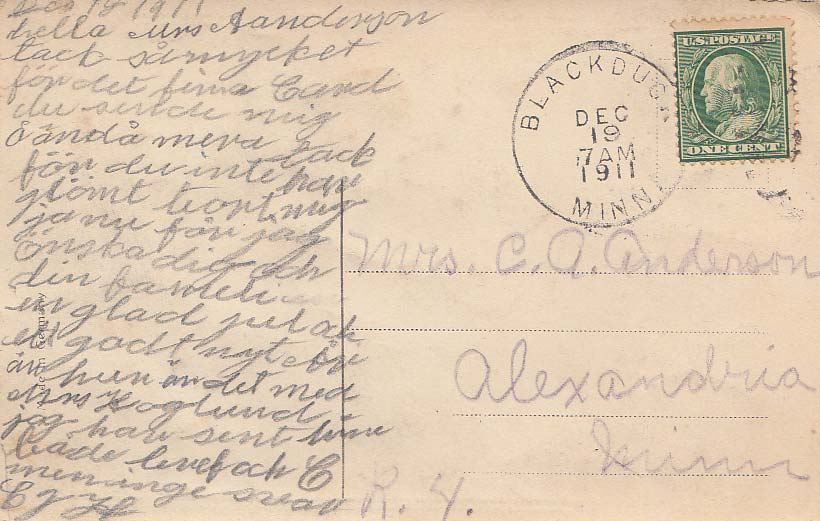 Dec 18 1911
hella Mrs A anderson
tack såmycket
för det fina Card
du sende mig
o ändå mera tack
för du inte har
glömt bort mig
ja nu får jag
önska dig och
din fameli
en glad jul och
ett godt nyt år
hur är det med
Mrs Hoglund
jag har sent hene
både bref och C
men inge svar
E J H
Made in Germany
BLACKDUCK
DEC
19
7 AM
1911
MINN.
U.S. POSTAGE
ONE CENT
Mrs. C. A. Anderson
Alexandria
Minn
R. 4.